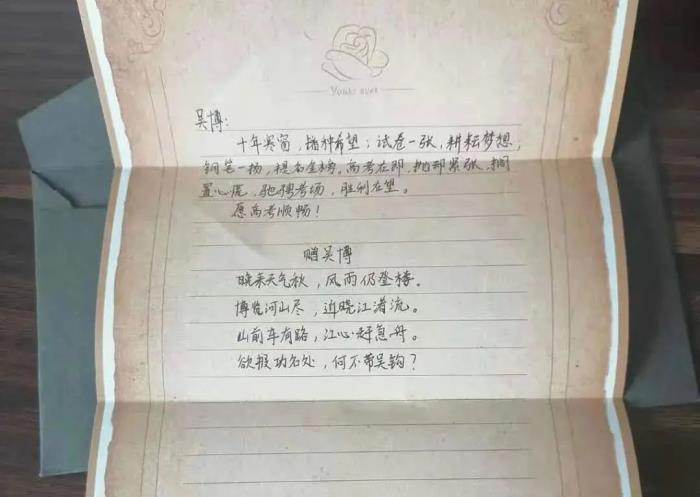 Yours ever
吴博：
十年寒窗，播种希望；试卷一张，耕耘梦想，
钢笔一扬，提名金榜。高考在即，抛却紧张，搁
置心慌，驰骋考场，胜利在望。
愿高考顺畅！
赠吴博
晚来天气秋，风雨仍登楼。
博览河山尽，近晓江渚流。
山前车有路，江心好急舟。
欲报功名处，何不带吴钩？